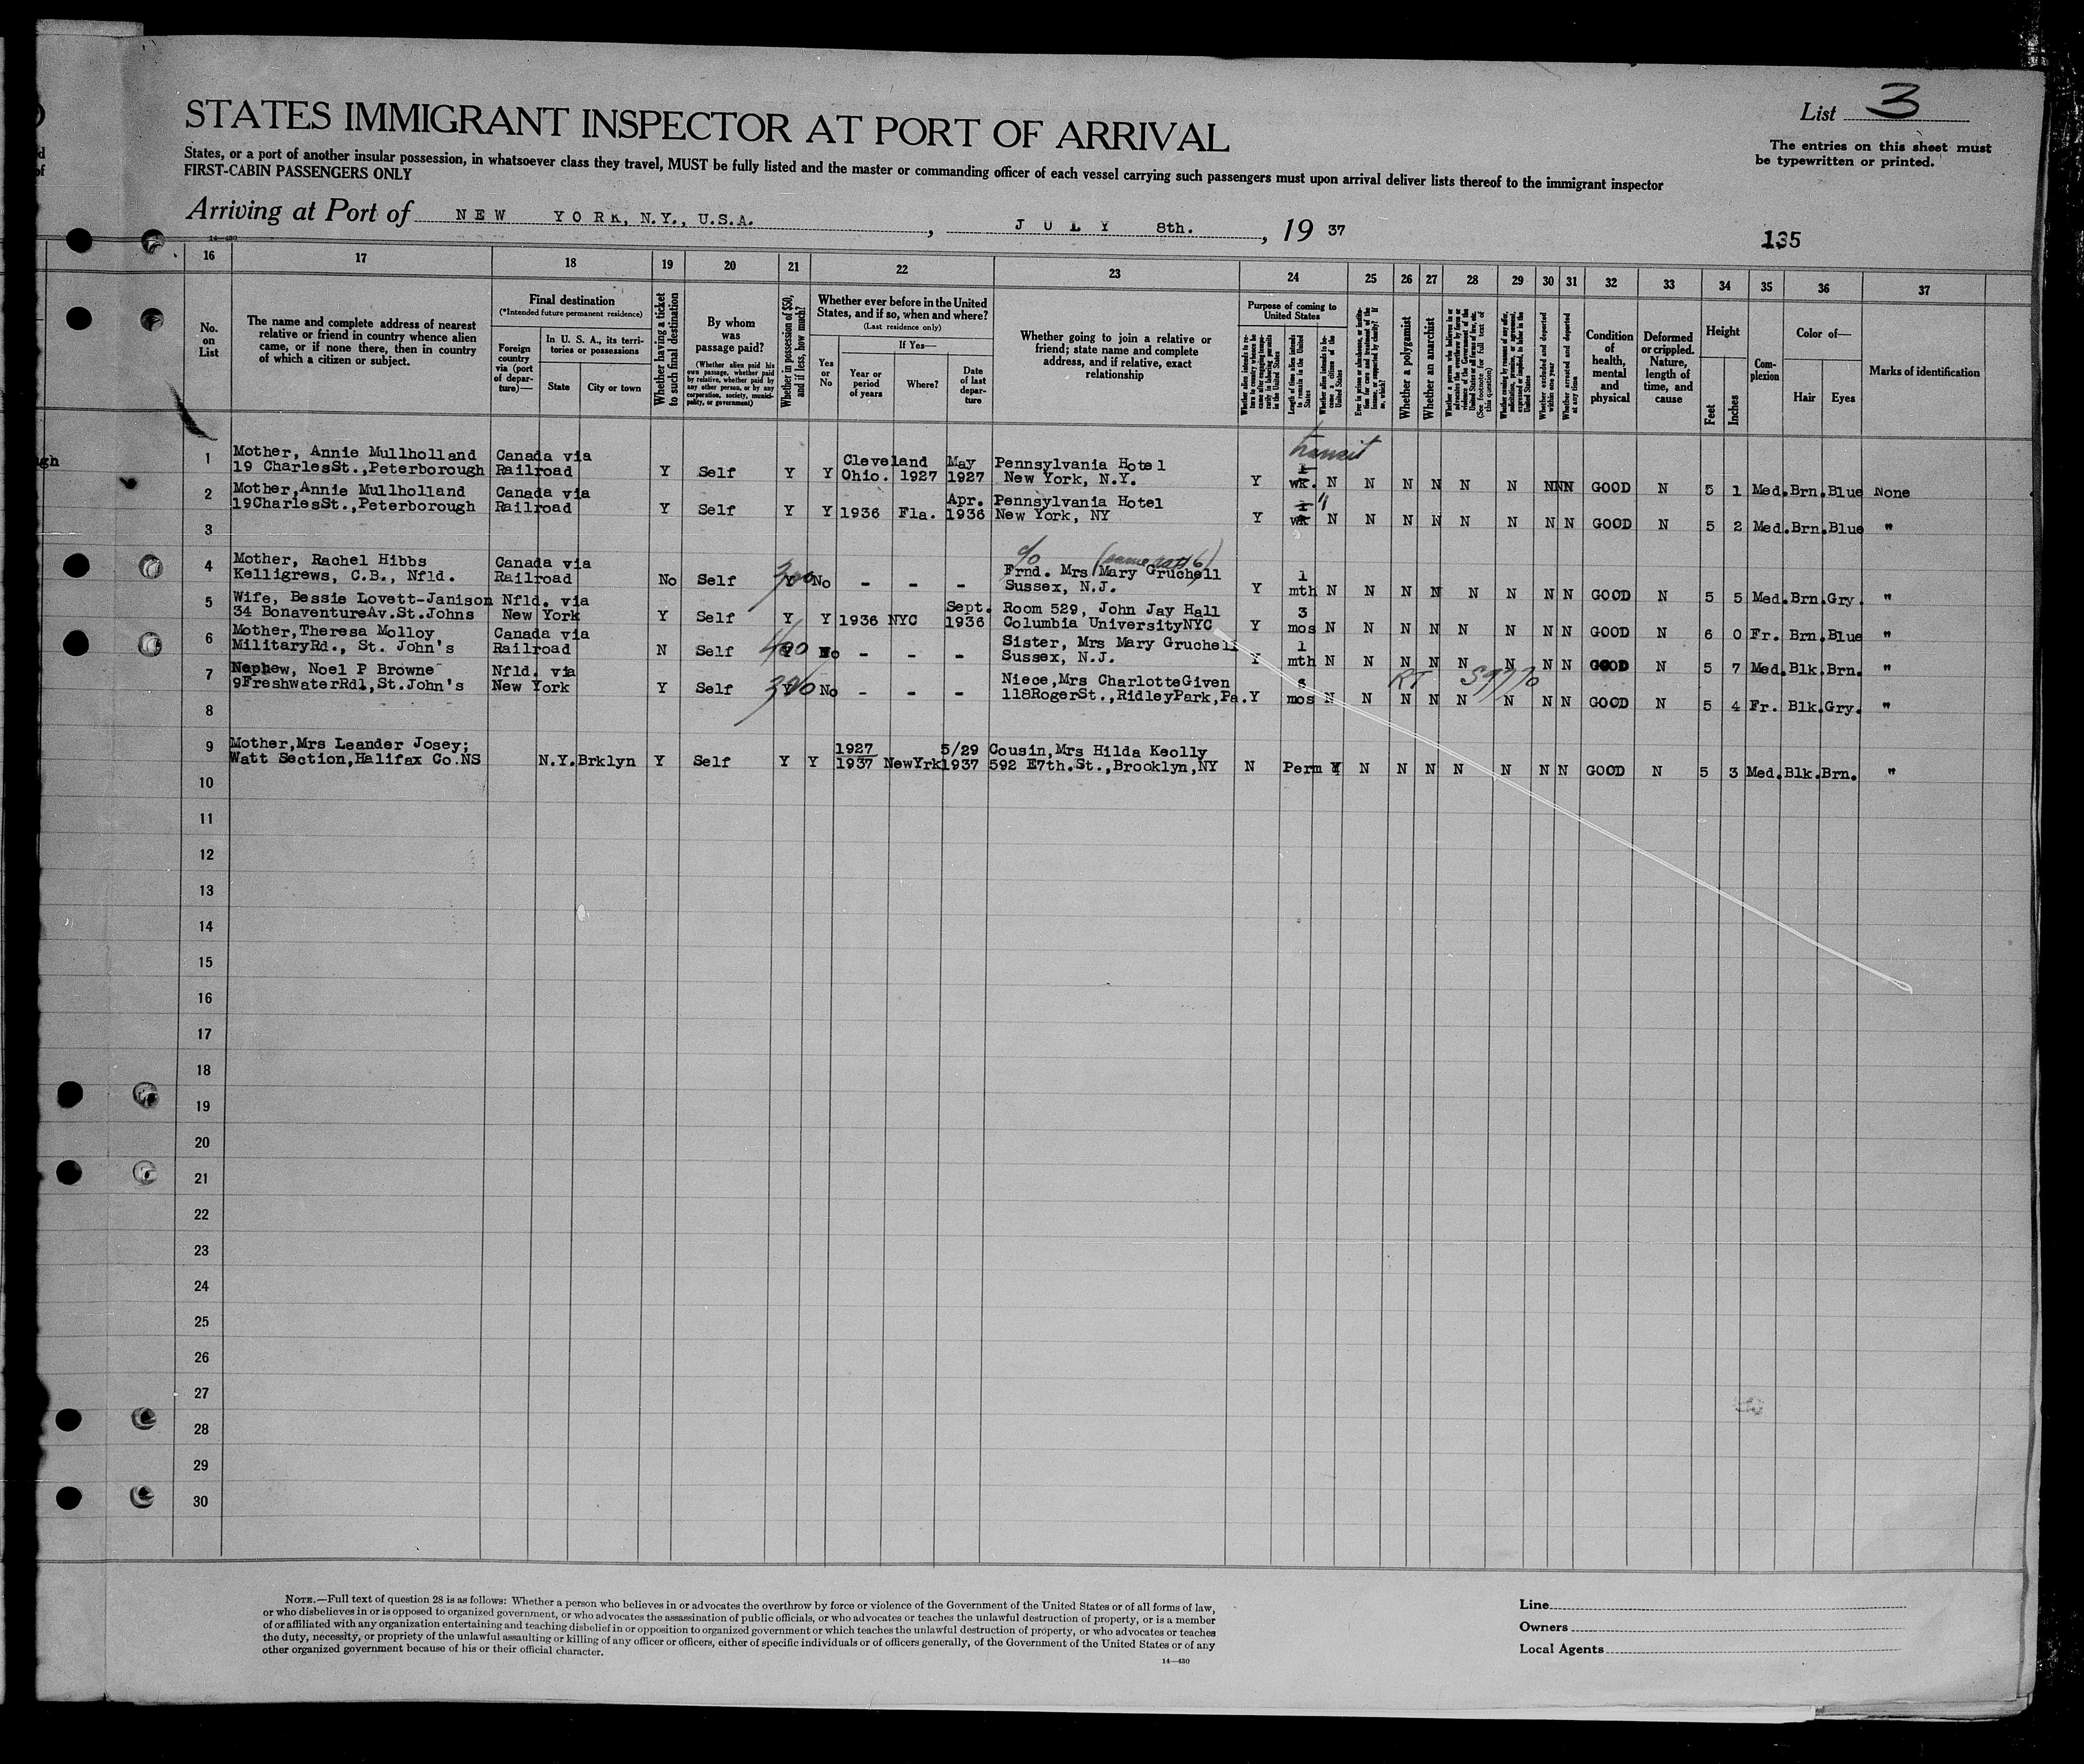 STATES IMMIGRANT INSPECTOR AT PORT OF ARRIVAL
List 3
The entries on this sheet must
be typewritten or printed.
States, or a port of another insular possession, in whatsoever class they travel, MUST be fully listed and the master or commanding officer of each vessel carrying such passengers must upon arrival deliver lists thereof to the immigrant inspector
FIRST-CABIN PASSENGERS ONLY
Arriving at Port of NEW YORK, N.Y., U.S.A., JULY 8th., 19 37
14—430
135
16 17 18 19 20 21 22 23 24 25 26 27 28 29 30 31 32 33 34 35 36 37
No. on List
The name and complete address of nearest
relative or friend in country whence alien
came, or if none there, then in country
of which a citizen or subject.
Final destination
(*Intended future permanent residence)
Foreign country via (port of departure)—
In U. S. A., its territories or possessions
State
City or town
Whether having a ticket to such final destination
By whom was passage paid?
(Whether alien paid his own passage, whether paid by relative, whether paid by any other person, or by any corporation, society, municipality, or government)
Whether in possession of $50, and if less, how much?
Whether ever before in the United
States, and if so, when and where?
(Last residence only)
Yes or No
If Yes—
Year or period of years
Where?
Date of last departure
Whether going to join a relative or
friend; state name and complete
address, and if relative, exact
relationship
Purpose of coming to United States
Length of time alien intends to remain in the United States
Whether alien intends to become a citizen of the United States
Whether a polygamist
Whether an anarchist
(See footnote for full text of this question)
Whether excluded and deported within one year
Whether arrested and deported at any time
Condition of health, mental and physical
Deformed or crippled. Nature, length of time, and cause
Height
Feet
Inches
Complexion
Color of—
Hair
Eyes
Marks of identification
transit
1 Mother, Annie Mullholland Canada via Cleveland May Pennsylvania Hotel 1
19 CharlesSt.,Peterborough Railroad Y Self Y Y Ohio. 1927 1927 New York, N.Y. Y wk. N N N N N N NNN GOOD N 5 1 Med.Brn.Blue None
2 Mother,Annie Mullholland Canada via Apr. Pennsylvania Hotel 1 "
19CharlesSt.,Peterborough Railroad Y Self Y Y 1936 Fla. 1936 New York, NY Y wk N N N N N N N N GOOD N 5 2 Med.Brn.Blue "
3
c/o (same as # 6)
4 Mother, Rachel Hibbs Canada via 300 Frnd. Mrs Mary Gruchell 1
Kelligrews, C.B., Nfld. Railroad No Self Y No - - - Sussex, N.J. Y mth N N N N N N N N GOOD N 5 5 Med.Brn.Gry. "
5 Wife, Bessie Lovett-Janison Nfld. via Sept. Room 529, John Jay Hall 3
34 BonaventureAv.St.Johns New York Y Self Y Y 1936 NYC 1936 Columbia UniversityNYC Y mos N N N N N N N N GOOD N 6 0 Fr. Brn.Blue "
6 Mother,Theresa Molloy Canada via 400 Sister, Mrs Mary Gruchell 1
MilitaryRd., St. John's Railroad N Self Y No - - - Sussex, N.J. Y mth N N N N N N N N GOOD N 5 7 Med.Blk.Brn. "
7 Nephew, Noel P Browne Nfld. via 300 Niece,Mrs CharlotteGiven RT
9FreshwaterRdl,St.John's New York Y Self Y No - - - 118RogerSt.,RidleyPark,Pa. Y mos N N N N N N N N GOOD N 5 4 Fr. Blk.Gry. "
8
9 Mother,Mrs Leander Josey; 1927 5/29 Cousin,Mrs Hilda Keolly
Watt Section,Halifax Co.NS N.Y.Brklyn Y Self Y Y 1937 NewYrk1937 592 E7th.St.,Brooklyn,NY N Perm Y N N N N N N N GOOD N 5 3 Med.Blk.Brn. "
10
11
12
13
14
15
16
17
18
19
20
21
22
23
24
25
26
27
28
29
30
NOTE.—Full text of question 28 is as follows: Whether a person who believes in or advocates the overthrow by force or violence of the Government of the United States or of all forms of law,
or who disbelieves in or is opposed to organized government, or who advocates the assassination of public officials, or who advocates or teaches the unlawful destruction of property, or is a member
of or affiliated with any organization entertaining and teaching disbelief in or opposition to organized government or which teaches the unlawful destruction of property, or who advocates or teaches
the duty, necessity, or propriety of the unlawful assaulting or killing of any officer or officers, either of specific individuals or of officers generally, of the Government of the United States or of any
other organized government because of his or their official character.
14—430
Line
Owners
Local Agents